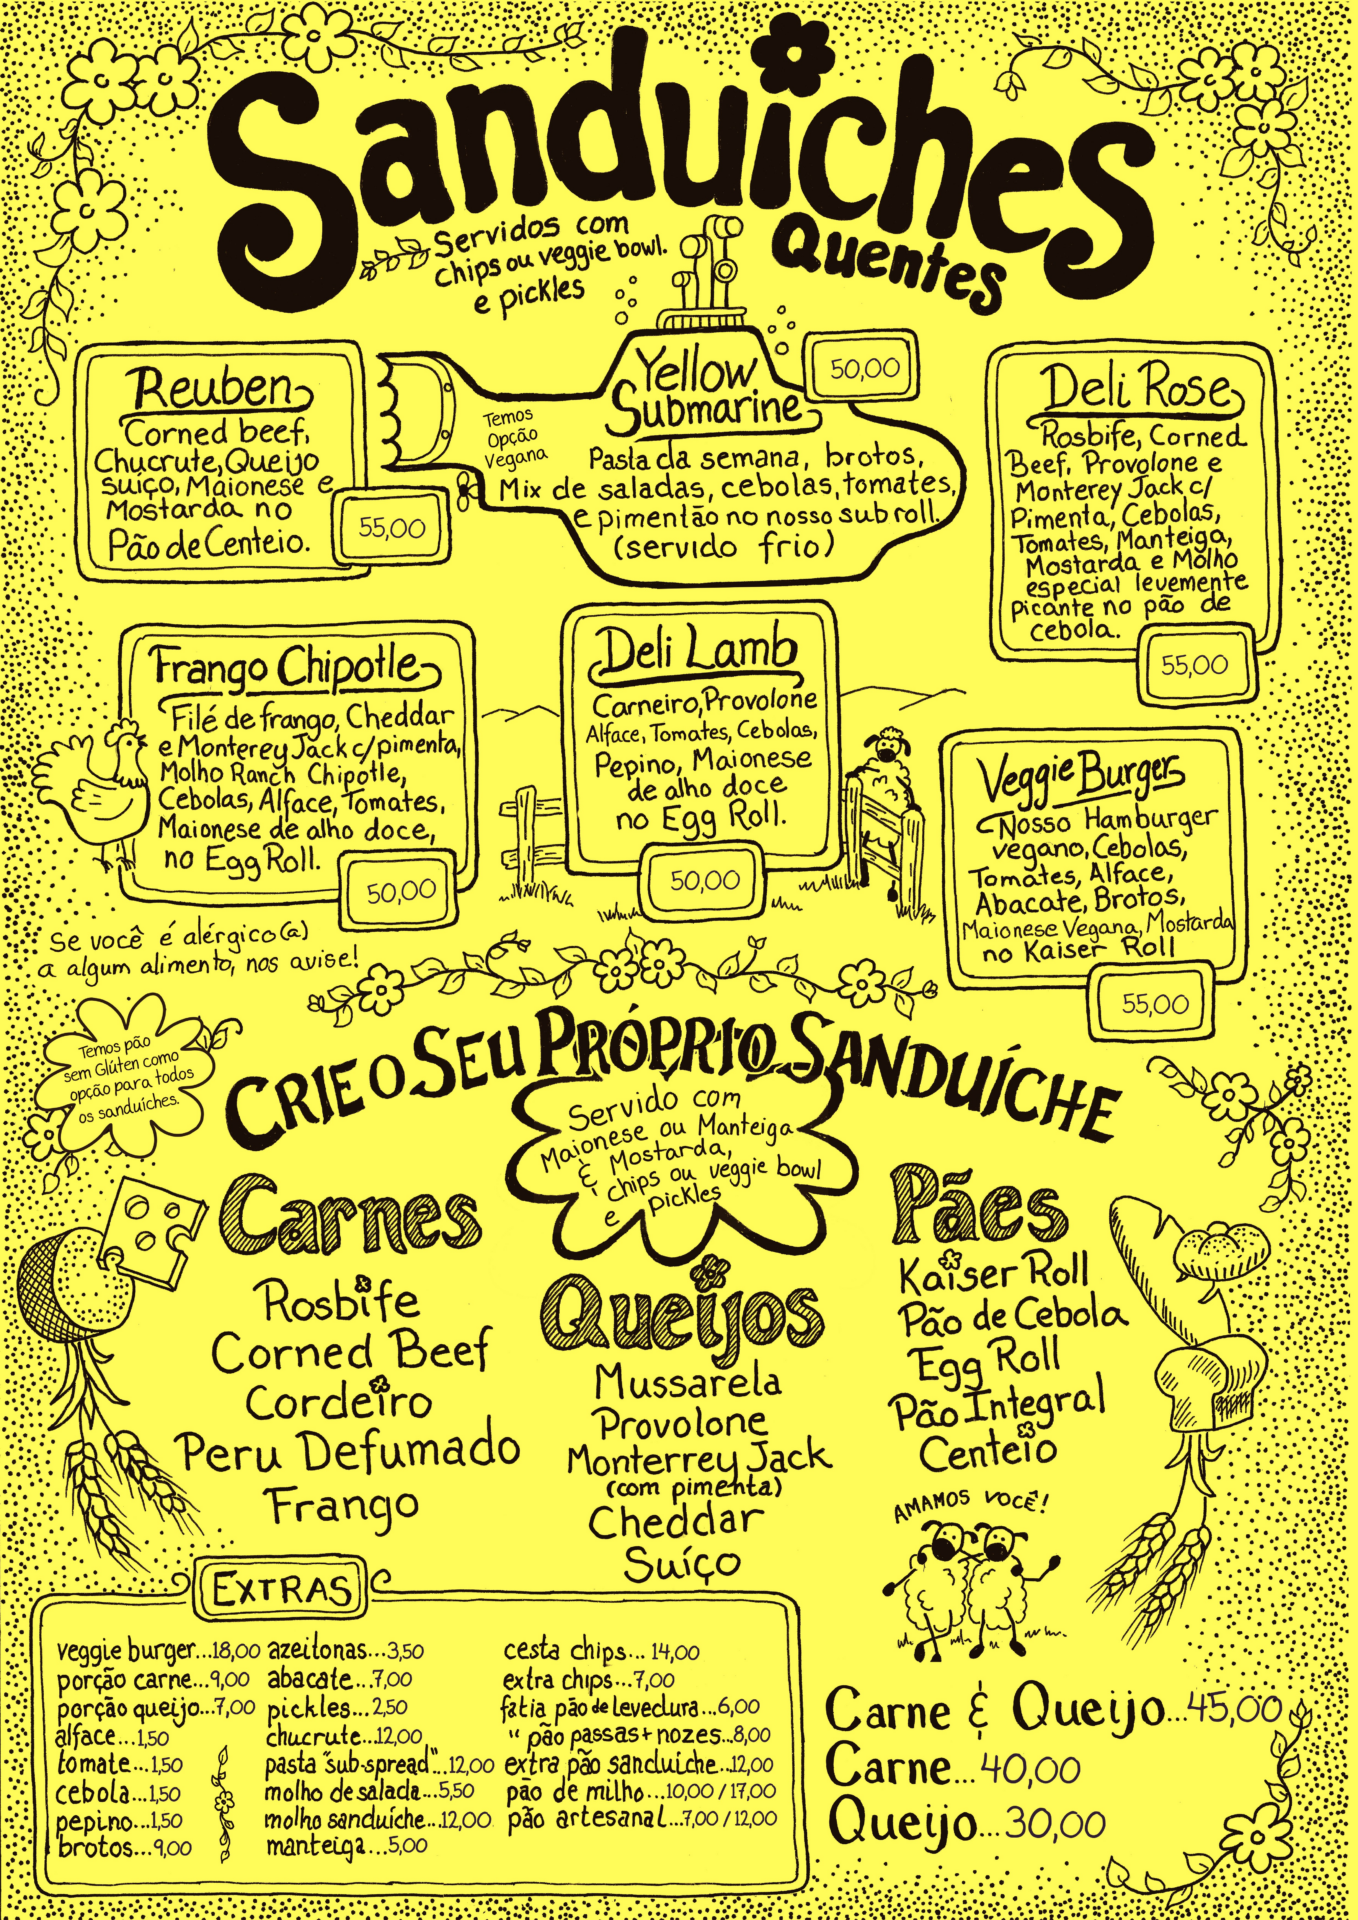 Sanduíches
Quentes
Servidos com
chips ou veggie bowl.
e pickles
Reuben
Corned beef,
Chucrute, Queijo
suiço, Maionese e
Mostarda no
Pão de Centeio.
55,00
Yellow
Submarine
50,00
Temos
Opção
Vegana
Pasta da semana, brotos,
Mix de saladas, cebolas, tomates,
e pimentão no nosso sub roll.
(servido frio)
Deli Rose
Rosbife, Corned
Beef, Provolone e
Monterey Jack c/
Pimenta, Cebolas,
Tomates, Manteiga,
Mostarda e Molho
especial levemente
picante no pão de
cebola.
55,00
Frango Chipotle
Filé de frango, Cheddar
e Monterey Jack c/pimenta,
Molho Ranch Chipotle,
Cebolas, Alface, Tomates,
Maionese de alho doce,
no Egg Roll.
50,00
Deli Lamb
Carneiro, Provolone
Alface, Tomates, Cebolas,
Pepino, Maionese
de alho doce
no Egg Roll.
50,00
Veggie Burger
Nosso Hamburger
vegano, Cebolas,
Tomates, Alface,
Abacate, Brotos,
Maionese Vegana, Mostarda
no Kaiser Roll
55,00
Se você é alérgico(a)
a algum alimento, nos avise!
Temos pão
sem Glúten como
opção para todos
os sanduíches.
CRIE O SEU PRÓPRIO SANDUÍCHE
Servido com
Maionese ou Manteiga
& Mostarda,
chips ou veggie bowl
e pickles
Carnes
Rosbife
Corned Beef
Cordeiro
Peru Defumado
Frango
Queijos
Mussarela
Provolone
Monterrey Jack
(com pimenta)
Cheddar
Suíço
Pães
Kaiser Roll
Pão de Cebola
Egg Roll
Pão Integral
Centeio
AMAMOS VOCÊ!
EXTRAS
veggie burger...18,00
porção carne...9,00
porção queijo...7,00
alface...1,50
tomate...1,50
cebola...1,50
pepino...1,50
brotos...9,00
azeitonas...3,50
abacate...7,00
pickles...2,50
chucrute...12,00
pasta "sub-spread"...12,00
molho de salada...5,50
molho sanduíche...12,00
manteiga...5,00
cesta chips...14,00
extra chips...7,00
fatia pão de levedura...6,00
" pão passas + nozes...8,00
extra pão sanduíche...12,00
pão de milho...10,00 / 17,00
pão artesanal...7,00 / 12,00
Carne & Queijo...45,00
Carne...40,00
Queijo...30,00